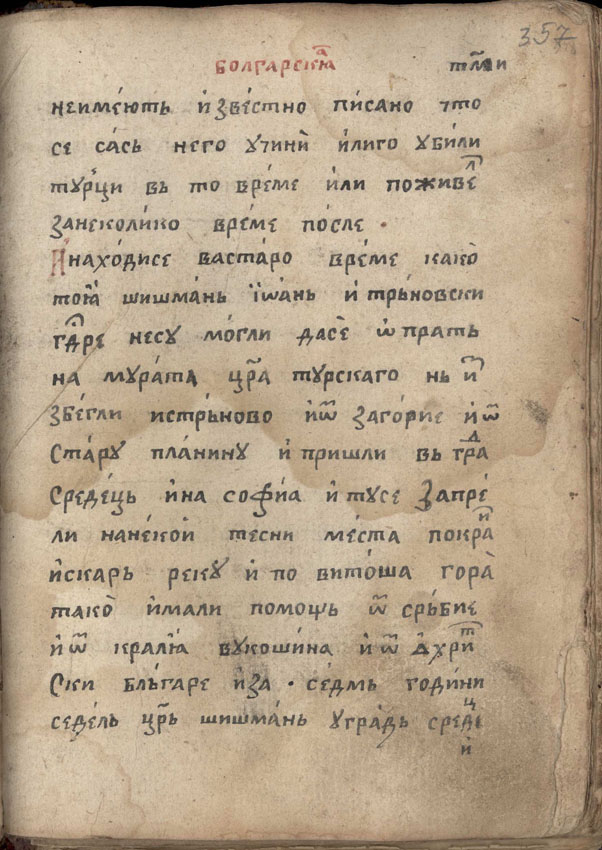 357
БОЛГАРСКИꙖ
неимею́ть и҆зве́стно пи́сано что
се са́сь него учини̏ и҆лиго уби́ли
ту́рци въ то вре́ме и҆ли поживеⷧ҇
занеколи́ко вре́ме по́сле .
И҆нахо́дисе васта́ро вре́ме како̀
тоꙗ̏ шишма́нь їѡ҆а́нь и҆ трь́новски
несу мо́гли дасѐ ѡ҆прать
на мура́та цр҃а турскаго нь
збе́гли истрь́ново иѿ заго́рие иѿ
Ста́ру пла́нину и҆ пришли въ граⷣ
Среде́ць и҆на софиа и҆ тусе Запре́
ли нане́кои тесни ме́ста покраⷤ
и҆скарь реку̀ и҆ по вито́ша гора̀
тако̀ и҆мали помощь ѿ срь́бие
иѿ кралꙗ вукоши́на иѿ
Ски блъ́гаре иза · се́дмь годи́ни
седе́ль цр҃ь шишма́нь угра́дь средеⷰ
и